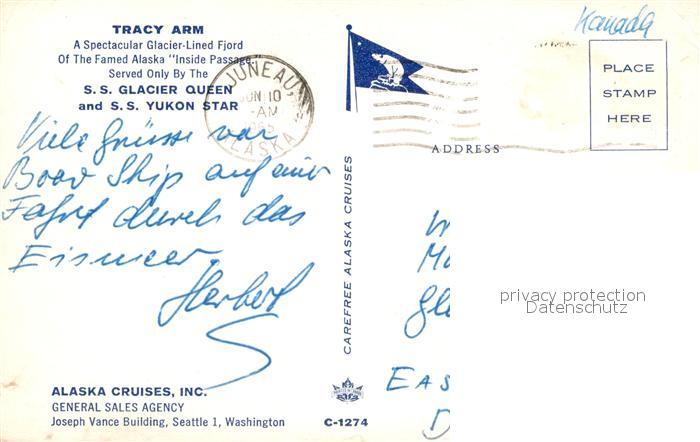 Kanada
TRACY ARM
A Spectacular Glacier-Lined Fjord
Of The Famed Alaska "Inside Passage"
Served Only By The
S.S. GLACIER QUEEN
and S.S. YUKON STAR
JUNEAU,
JUN 10
AM
ALASKA
PLACE
STAMP
HERE
ADDRESS
Viele Grüsse von
Boad Ship auf einer
Fahrt durch das
Eismeer
Herbert
CAREFREE ALASKA CRUISES
privacy protection
Datenschutz
EAS
D
ALASKA CRUISES, INC.
GENERAL SALES AGENCY
Joseph Vance Building, Seattle 1, Washington
C-1274